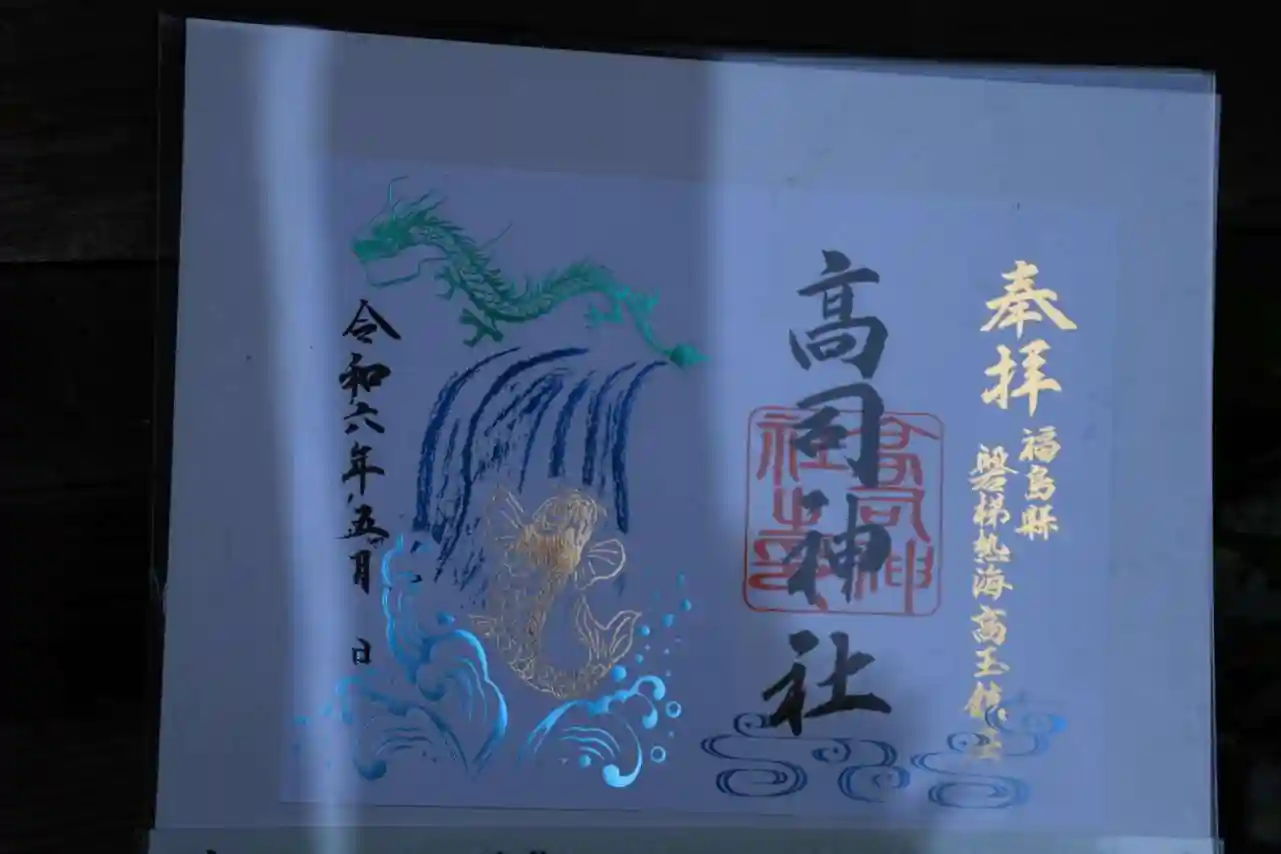 奉拝
福島縣
磐梯熱海高玉鎮士
高司神社
高司神社之印
令和六年五月 日